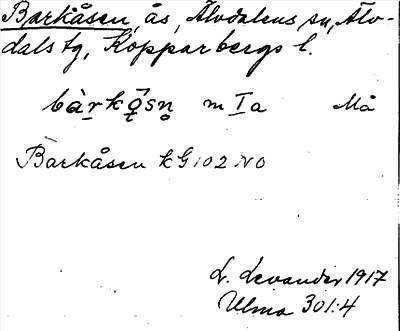 Barkåsen, ås, Älvdalens sn, Älv-
dals tg, Kopparbergs l.
bàrkǫ̂sn̥ m Ia Må
Barkåsen kG 102 NO
L. Levander 1917
Ulma 301:4